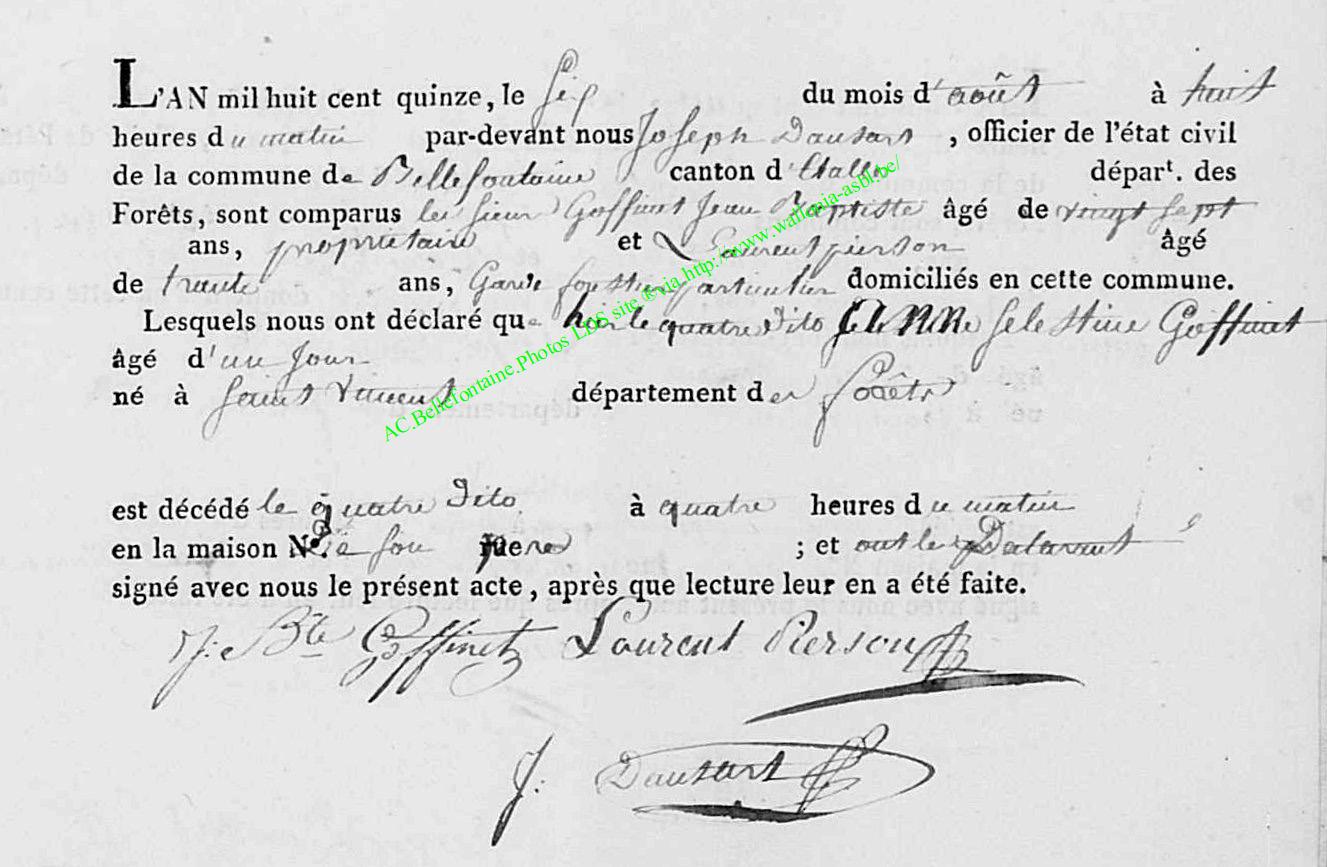 L'AN mil huit cent quinze, le six du mois d'août à huit
heures du matin par-devant nous Joseph Dausart, officier de l'état civil
de la commune de Bellefontaine canton d'Etalle dépar^t. des
Forêts, sont comparus les sieur Goffinet Jean Baptiste âgé de vingt sept
ans, propriétaire et Laurent pierson âgé
de trente ans, Garde forestier particulier domiciliés en cette commune.
Lesquels nous ont déclaré que hier le quatre dito Selestine Goffinet
âgé d'un jour
né à saint vincent département des forêts
est décédé le quatre dito à quatre heures du matin
en la maison de son pere ; et ont les Déclarant
signé avec nous le présent acte, après que lecture leur en a été faite.
J: Bte Goffinet Laurent Pierson
J: Dausart
AC.Bellefontaine.Photos LDS site @via http://www.wallonia-asbl.be/